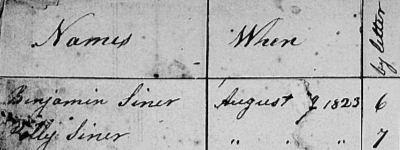 Names When by letter
Benjamin Siner August 9 1823 6
Polly Siner " " " 7